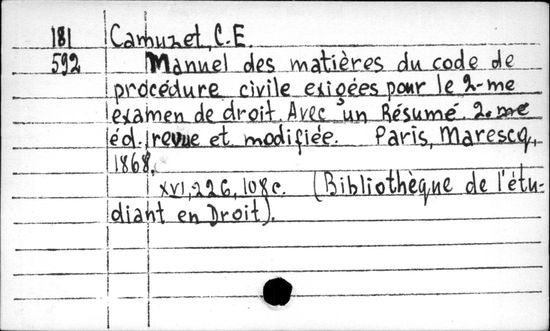 181 Camuzet, C.E.
592 Manuel des matières du code de
procédure civile exigées pour le 2-me
examen de droit. Avec un Résumé. 2-me
éd. revue et modifiée. Paris, Marescq,
1868.
XVI, 226, 108 c. (Bibliothèque de l'étu-
diant en Droit).